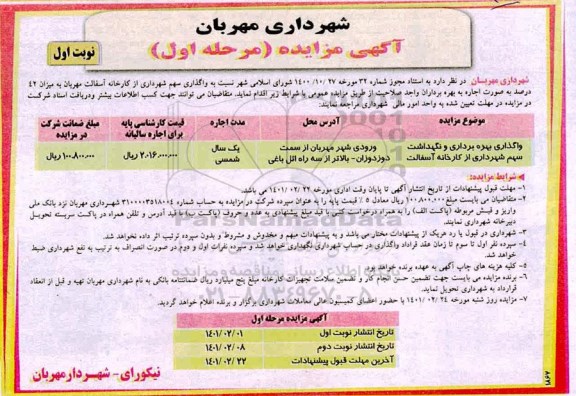 شهرداری مهربان
آگهی مزایده (مرحله اول)
نوبت اول
شهرداری مهربان در نظر دارد به استناد مجوز شماره ۳۲ مورخه ۱۴۰۰/۱۰/۲۷ شورای اسلامی شهر نسبت به واگذاری سهم شهرداری از کارخانه آسفالت مهربان به میزان ۴۲
درصد به صورت اجاره به بهره برداران واجد صلاحیت از طریق مزایده عمومی با شرایط زیر اقدام نماید. متقاضیان می توانند جهت کسب اطلاعات بیشتر ودریافت اسناد شرکت
در مزایده در مهلت تعیین شده به واحد امور مالی شهرداری مراجعه نمایند:
موضوع مزایده آدرس محل مدت اجاره قیمت کارشناسی پایه برای اجاره سالیانه مبلغ ضمانت شرکت در مزایده
واگذاری بهره برداری و نگهداشت ورودی شهر مهربان از سمت یک سال ۲.۰۱۶.۰۰۰.۰۰۰ ریال ۱۰۰.۸۰۰.۰۰۰ ریال
سهم شهرداری از کارخانه آسفالت دوزدوزان- بالاتر از سه راه اتل باغی شمسی
شرایط مزایده:
۱- مهلت قبول پیشنهادات از تاریخ انتشار آگهی تا پایان وقت اداری مورخه ۱۴۰۱/۰۲/۲۲ می باشد.
۲- متقاضیان می بایست مبلغ ۱۰۰.۸۰۰.۰۰۰ ریال معادل ۵ ٪ قیمت پایه را به عنوان سپرده شرکت در مزایده به حساب شماره ۳۱۰۰۰۰۳۵۱۸۰۰۴ شهرداری مهربان نزد بانک ملی
واریز و فیش مربوطه (پاکت الف) را به همراه درخواست کتبی با قید مبلغ پیشنهادی به عدد و حروف (پاکت ب) با قید آدرس و تلفن همراه در پاکت سربسته تحویل
دبیرخانه شهرداری نمایند.
۳- شهرداری در قبول یا رد هریک از پیشنهادات مختار می باشد و به پیشنهادات مبهم و مخدوش و مشروط و بدون سپرده ترتیب اثر داده نخواهد شد.
۴- سپرده نفر اول تا سوم تا زمان عقد قرارداد واگذاری در حساب شهرداری نگهداری خواهد شد و سپرده نفرات اول و دوم در صورت انصراف به ترتیب به نفع شهرداری ضبط
خواهد شد.
۵- کلیه هزینه های چاپ آگهی به عهده برنده خواهد بود
۶- برنده مزایده می بایست جهت تضمین حسن انجام کار و تضمین سلامت تجهیزات کارخانه مبلغ پنج میلیارد ریال ضمانتنامه بانکی به نام شهرداری مهربان تهیه و قبل از انعقاد
قرارداد به شهرداری تحویل نماید.
۷- مزایده روز شنبه مورخه ۱۴۰۱/۰۲/۲۴ با حضور اعضای کمیسیون عالی معاملات شهرداری برگزار و برنده اعلام خواهد گردید.
آگهی مزایده مرحله اول
تاریخ انتشار نوبت اول ۱۴۰۱/۰۲/۰۱
تاریخ انتشار نوبت دوم ۱۴۰۱/۰۲/۰۸
آخرین مهلت قبول پیشنهادات ۱۴۰۱/۰۲/۲۲
نیکورای- شهردارمهربان
۱۸۶۷